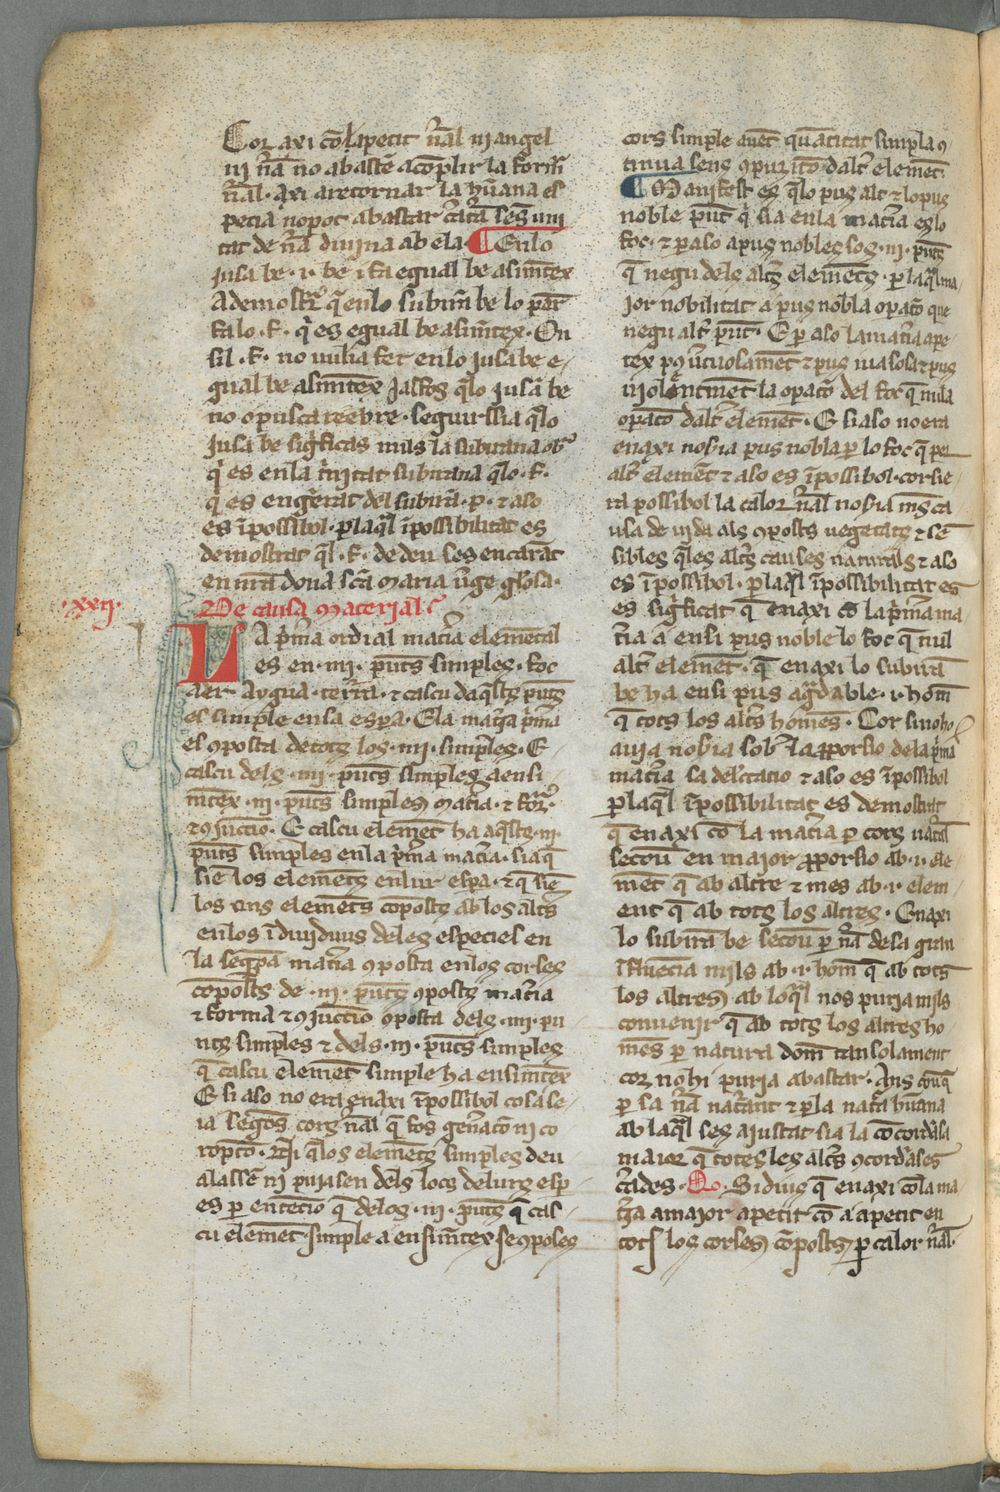 Cor axi cō lapetit n̄al ni angel
ni n̄a no abastē a complir la form̄
n̄al · axi a retornar la hūana es
pecia no pot abastar c̄atā sēs uni
tat de n̄a divina ab ela · ¶ En lo
jusa be · i · be ifa egual be a simtex
A demostr̄ q̄ en lo subirā be lo pēt
fa lo · f · q̇ es egual be a simtex · On
sil · f · no uulia fer en lo jusa be e-
gual be a simtex ja fos q̄lo jusā be
no o pusca reebre · seguir sia q̄lo
jusa be sigficas mils la subirana ob̄
q̇ es en la t̄nitat subirana q̄lo · f ·
q̇ es engērat del subirā · p · ⁊ aso
es īpossibol · p laq̄l īpossibilitat es
demostrat q̄l · f · de deu ses encarāt
en nr̄a dona sc̄a maria v̄ge gl̄osa ·
· xxij · De causa material
LA p̄ma ordial mat̄ia elemēcal
es en · iii · pūts simples · foc
aer aygua · terra · ⁊ cascu daq̄sts pūts
es simple en sa espā · E la mat̄ia p̄ma
es 9posta de tots los · iiii · simples · E
cascu dels · iiii · pūts simples a en si
mtex · iii · pūts simples mat̄ia · ⁊ for̄
⁊ 9juctio · E cascu elemēt ha aq̄sts · iii ·
pūts simples en la p̄ma mat̄ia · si a q̄
siē los elemēts en lur espā · ⁊ q̄ siē
los uns elemēts cōposts ab los alt̄s
en los īdiuiduus de les especies en
la segōa mat̄ia 9posta en los corses
cōposts de · iii · pūts 9posts mat̄ia
⁊ forma ⁊ 9juctio 9posta dels · iiii · pu
nts simples ⁊ dels · iii · pūts simples
q̄ cascu elemēt simple ha en simtex
E si aso no era enaxi īpossibol cosa se-
ia segōs cors n̄al q̄ fos gen̄acō ni co
ropcō · q̄los elemēts simples deu
alassē ni pujasen dels locs de lurs esp
es p entēcio q̄ de los · iii · pūts q̄ cas-
cu elemēt simple a en simtex se 9poses
cors simple auēt quātitat simpla 9
tinua sens 9puricō dalt̄ elemēt
¶ Manifest es q̄lo pus alt ⁊ lo pus
noble pūt q̇ sia en la mat̄ia es lo
foc · ⁊ p aso a pus nobles sos · iii · pūts
q̄ negu dels alt̄s elemēts · p laq̄l ma-
jor nobilitat a pus nobla opacō que
negu alt̄ pūt · E p aso la mat̄ia ape-
tex p9 v̄tuosamēt ⁊ pus uiasosa ⁊ pus
uiolēntmēt la opacō del foc q̄ nula
opacō dalt̄ elemēt · E si aso no era
enaxi no sia pus nobla p lo foc q̄ per
alt̄ elemēt ⁊ aso es īpossibol · cor sie
ra possibol la calor n̄al no sia ms̄ ca
usa de uida als 9posts uegetats ⁊ sē
sibles q̄les alt̄s causes naturals ⁊ aso
es īpossibol · p laq̄l īpossibilitat es
es sigficat q̄ enaxi cō la p̄ma ma
t̄ia a en si pus noble lo foc q̄ nul
alt̄ elemēt · q̄ enaxi lo subirā
be ha en si pus ag̈dable · i · hom̄
q̄ tots los alt̄s homēs · Cor si no ho
auia no sia sob̄ la pporsio de la p̄ma
mat̄ia sa del̄tatio ⁊ aso es īpossibol
p laq̄l īpossibilitat es demostrat
q̄ enaxi cō la mat̄ia p cors nat̄al
se couē en major pporsio ab · i · ele-
mēt q̄ ab altre ⁊ mes ab · i · elem-
ent q̄ ab tots los altres · Enaxi
lo subirā be se couē p n̄a de sa gran
ifluēcia mils ab · i · hom̄ q̄ ab tots
los altres ab loq̄l nos puria mils
conuenir q̄ ab tots los altres ho
mēs p natura dom̄ tan solament
cor no hi puria abastar · Ans couē
p sa n̄a nat̄ant ⁊ p la nat̄a hūana
ab laq̄l ses aiustat sia la cōcordāsa
maior q̄ totes les alt̄s 9cord̄ases
c̄ades · Qo · Si dius q̄ enaxi cō la ma-
t̄ia a major apetit cō a apetit en
tots los corses cōposts p calor n̄al ·